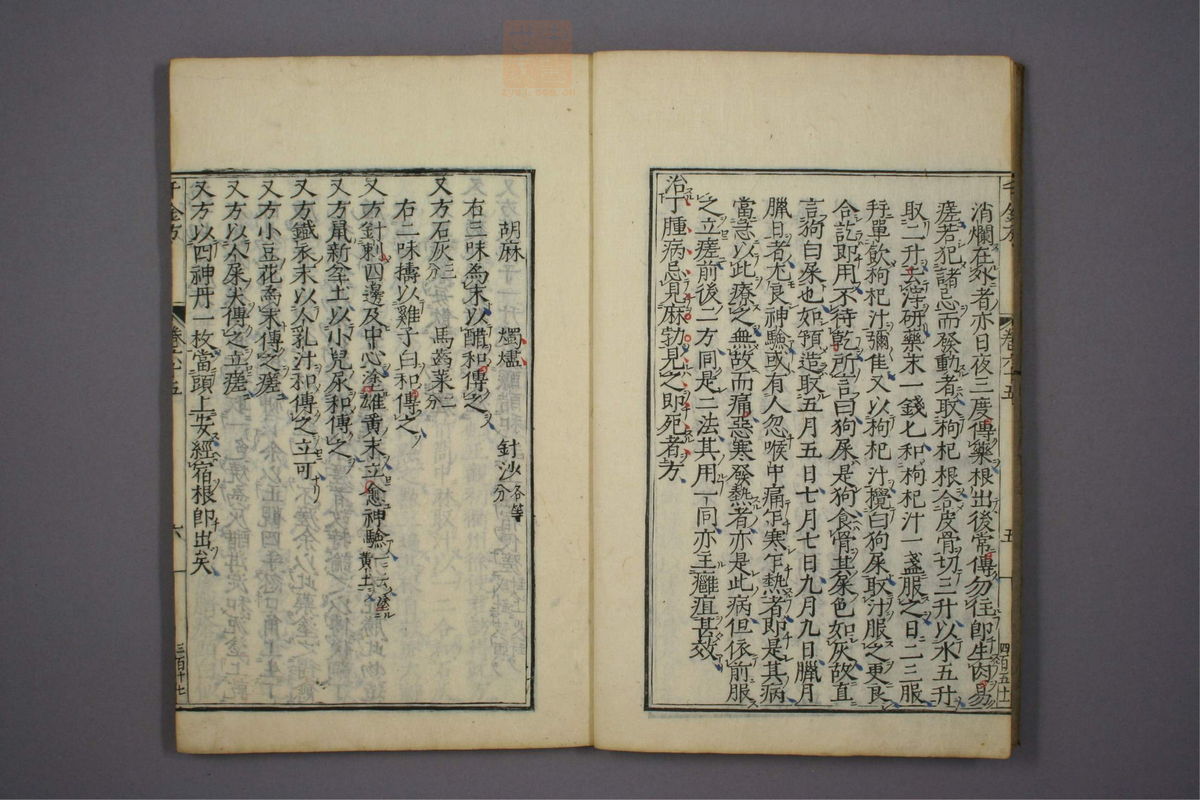 消爛在外者亦日夜三度傅藥根出後常傅勿住即生肉易
瘥若犯諸忌而發動者取枸杞根合皮骨切三升以水五升
取二升去滓研藥末一錢匕和枸杞汁一盞服之日二三服
并單飲枸杞汁彌佳又以枸杞汁攪白狗屎取汁服之更良
合訖即用不待乾所言白狗屎是狗食骨其屎色如灰故直
言狗白屎也如預造取五月五日七月七日九月九日臘月
臘日者尤良神驗或有人忽喉中痛乍寒乍熱者即是其病
當急以此療之無故而痛惡寒發熱者亦是此病但依前服
之立瘥前後二方同是一法其用一同亦主癰疽甚效
治丁腫病忌見麻勃見之即死者方
千金方
卷六十五
五
四百五十
胡麻 燭燼 針沙各等分
右三味為末以醋和傅之
又方石灰三分 馬齒菜二分
右二味擣以雞子白和傅之
又方針刺四邊及中心塗雄黃末立愈神驗一云塗黃土
又方鼠新坌土以小兒尿和傅之
又方鐵衣末以人乳汁和傅之立可
又方小豆花為末傅之瘥
又方以人屎尖傅之立瘥
又方以四神丹一枚當頭上安經宿根即出矣
千金方
卷六十五
六
三百十七